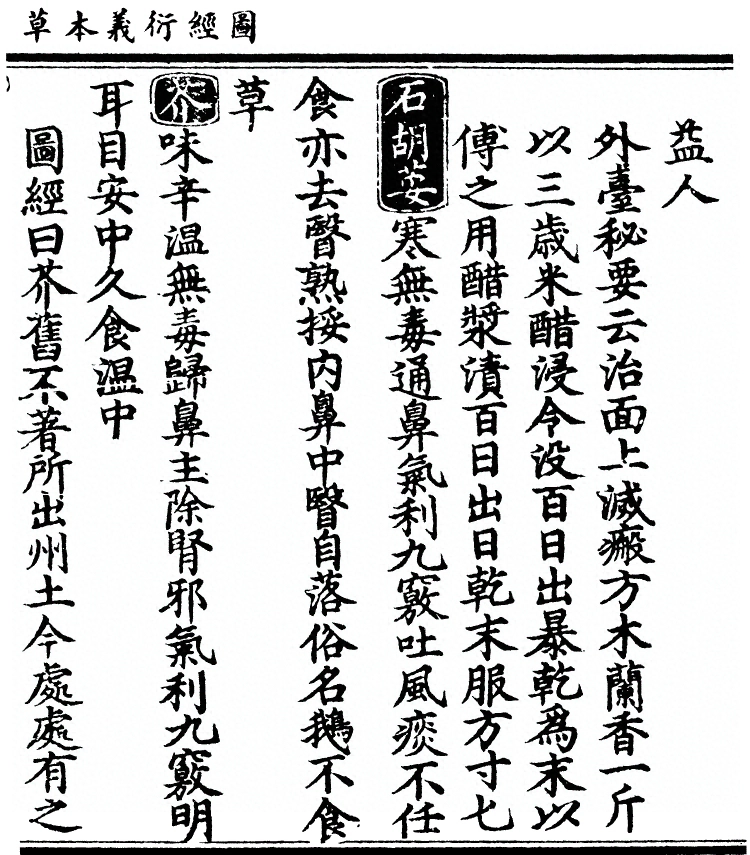 圖經衍義本草
益人
外臺秘要云治面上㓕瘢方木蘭香一斤
以三歲米醋浸令没百日出暴乾爲末以
傅之用醋漿漬百日出日乾末服方寸七
石胡荽寒無毒通鼻氣利九竅吐風痰不任
食亦去瞖熟挼内鼻中瞖自落俗名鵝不食
草
芥味辛温無毒歸鼻主除腎邪氣利九竅明
耳目安中久食温中
圖經曰芥舊不著所出州土今處處有之